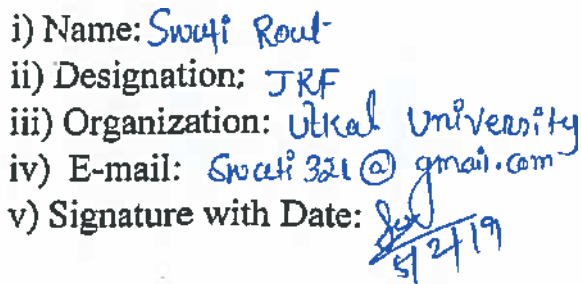 i) Name: Swati Rout
ii) Designation: JRF
iii) Organization: Utkal University
iv) E-mail: Swati321@gmail.com
v) Signature with Date:
5/2/19